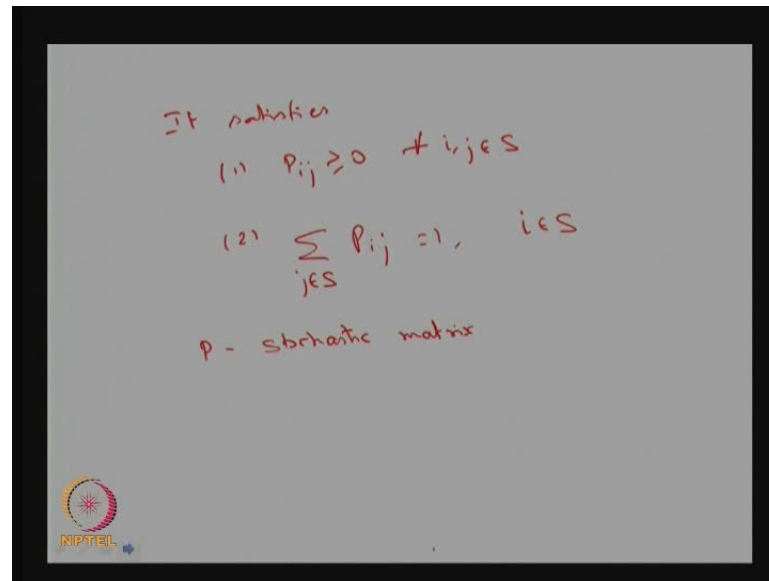 It satisfies
(1) Pij ≥ 0 ∀ i, j ∈ S
(2) ∑ Pij = 1, i ∈ S
j∈S
P - stochastic matrix
NPTEL